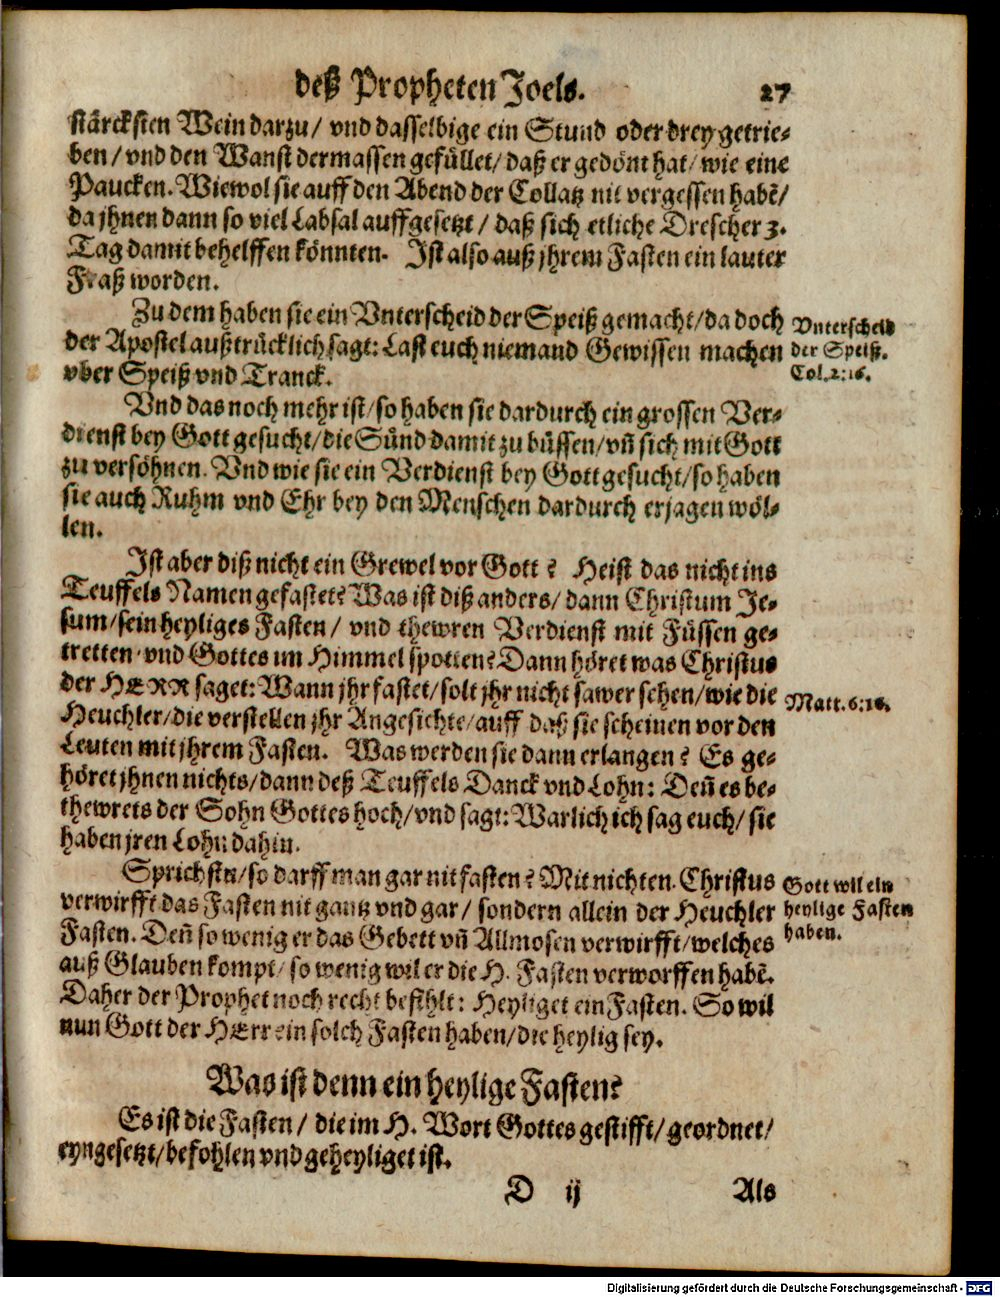 deß Propheten Joels. 27
stärcksten Wein darzu/ vnd dasselbige ein Stund oder drey getrie-
ben/ vnd den Wanst dermassen gefüllet/ daß er gedönt hat/ wie eine
Paucken. Wiewol sie auff den Abend der Collatz nit vergessen habē/
da jhnen dann so viel Labsal auffgesetzt/ daß sich etliche Drescher 3.
Tag damit behelffen könnten. Ist also auß jhrem Fasten ein lauter
Fraß worden.
Zu dem haben sie ein Vnterscheid der Speiß gemacht/ da doch
der Apostel außtrücklich sagt: Last euch niemand Gewissen machen
vber Speiß vnd Tranck.
Vnterscheid
der Speiß.
Col.2:16.
Vnd das noch mehr ist/ so haben sie dardurch ein grossen Ver-
dienst bey Gott gesucht/ die Sünd damit zu büssen/ vñ sich mit Gott
zu versöhnen. Vnd wie sie ein Verdienst bey Gott gesucht/ so haben
sie auch Ruhm vnd Ehr bey den Menschen dardurch erjagen wöl-
len.
Ist aber diß nicht ein Grewel vor Gott? Heist das nicht ins
Teuffels Namen gefastet? Was ist diß anders/ dann Christum Je-
sum/ sein heyliges Fasten/ vnd thewren Verdienst mit Füssen ge-
tretten/ vnd Gottes im Himmel spotten? Dann höret was Christus
der HERR saget: Wann jhr fastet/ solt jhr nicht sawer sehen/ wie die
Heuchler/ die verstellen jhr Angesichte/ auff daß sie scheinen vor den
Leuten mit jhrem Fasten. Was werden sie dann erlangen? Es ge-
höret jhnen nichts/ dann deß Teuffels Danck vnd Lohn: Deñ es be-
thewrets der Sohn Gottes hoch/ vnd sagt: Warlich ich sag euch/ sie
haben jren Lohn dahin.
Matt.6:16.
Sprichstu/ so darff man gar nit fasten? Mit nichten. Christus
verwirfft das Fasten nit gantz vnd gar/ sondern allein der Heuchler
Fasten. Deñ so wenig er das Gebett vñ Allmosen verwirfft/ welches
auß Glauben kompt/ so wenig wil er die H. Fasten verworffen habē.
Daher der Prophet noch recht befihlt: Heyliget ein Fasten. So wil
nun Gott der HErr ein solch Fasten haben/ die heylig sey.
Gott wil ein
heylige Fasten
haben.
Was ist denn ein heylige Fasten?
Es ist die Fasten/ die im H. Wort Gottes gestifft/ geordnet/
eyngesetzt/ befohlen vnd geheyliget ist.
D ij Als
Digitalisierung gefördert durch die Deutsche Forschungsgemeinschaft - DFG